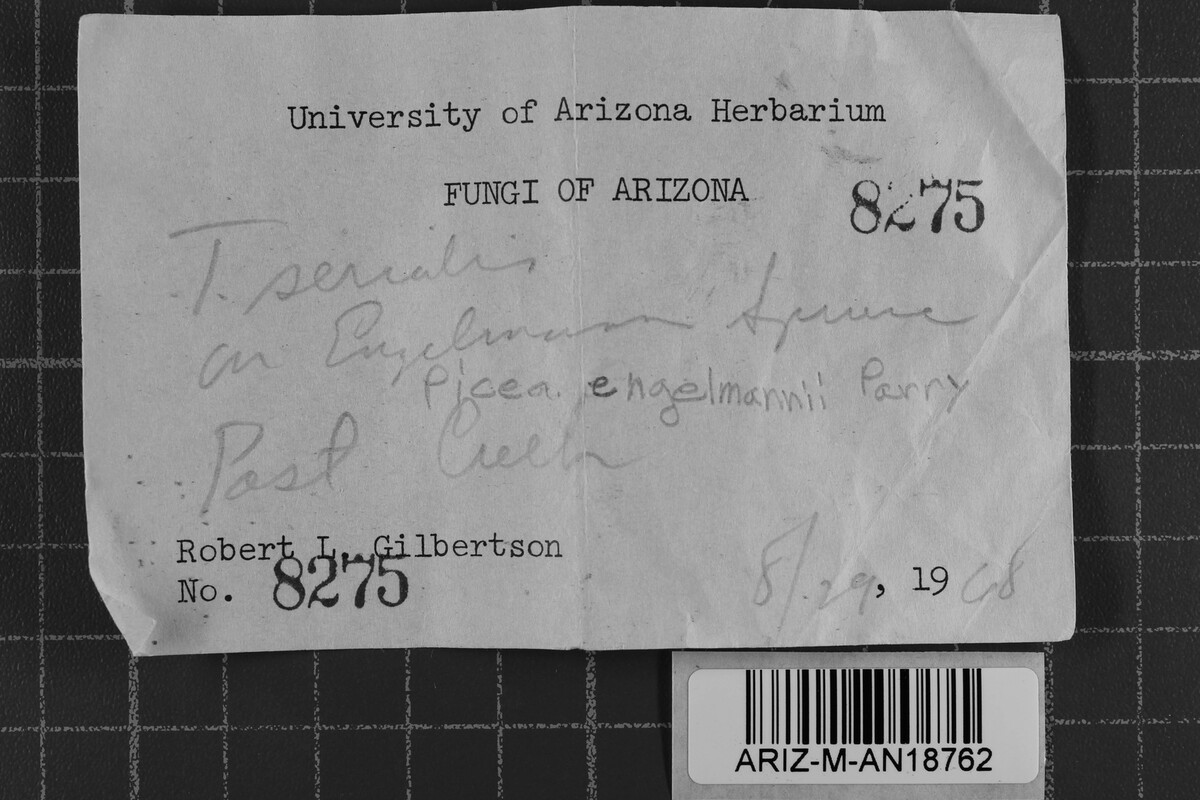 University of Arizona Herbarium
FUNGI OF ARIZONA
8275
T. serialis
on Engelmann Spruce
Picea engelmannii Parry
Post Creek
Robert L. Gilbertson
No. 8275
8/29, 1968
ARIZ-M-AN18762